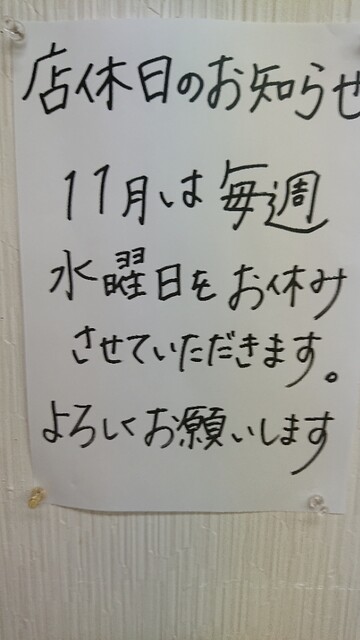 店休日のお知らせ
11月は毎週
水曜日をお休み
させていただきます。
よろしくお願いします